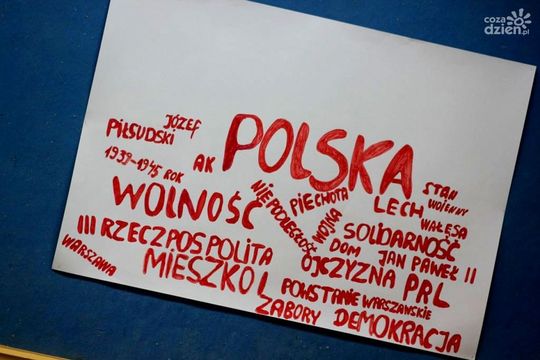 coza
dzień.pl
POLSKA
JÓZEF
PIŁSUDSKI
1939-1945 ROK
AK
WOLNOŚĆ
NIEPODLEGŁOŚĆ
PIECHOTA
WOJNA
LECH
WAŁĘSA
STAN
WOJENNY
SOLIDARNOŚĆ
DOM
JAN PAWEŁ II
III RZECZPOSPOLITA
OJCZYZNA
PRL
WARSZAWA
MIESZKO I
POWSTANIE WARSZAWSKIE
ZABORY
DEMOKRACJA